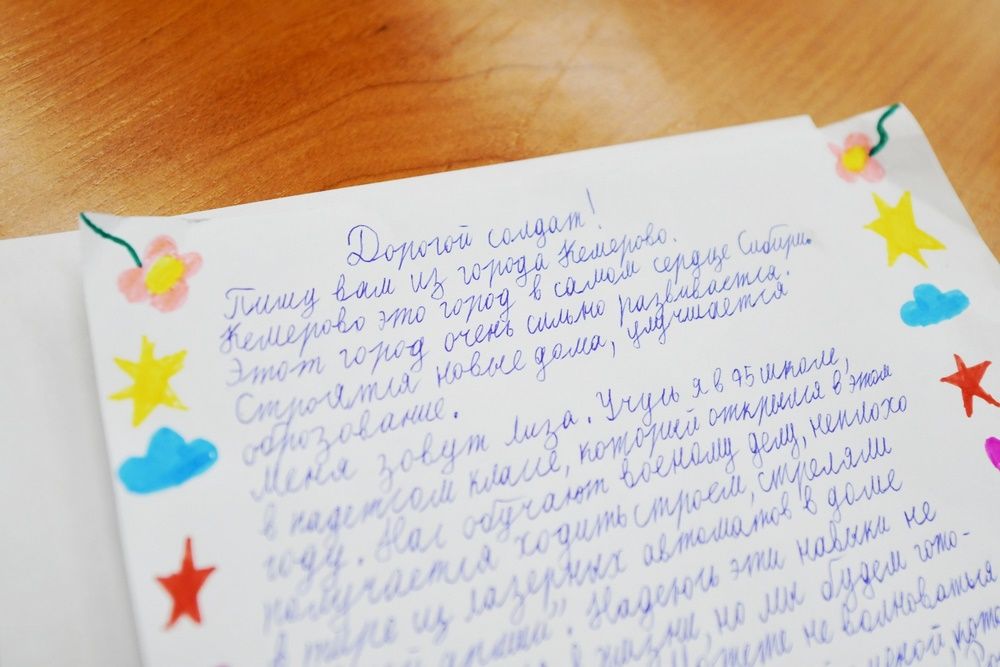 Дорогой солдат!
Пишу вам из города Кемерово.
Кемерово это город в самом сердце Сибири.
Этот город очень сильно развивается.
Строятся новые дома, улучшается
оброзование.
Меня зовут Лиза. Учусь я в 95 школе,
в кадетском классе, который открылся в этом
году. Нас обучают военому делу, неплохо
получается ходить строем, стреляли
в тире из лазерных автоматов в доме
армии". Надеюсь эти навыки не
в жизни, но мы будем гото-
Можете не волноваться